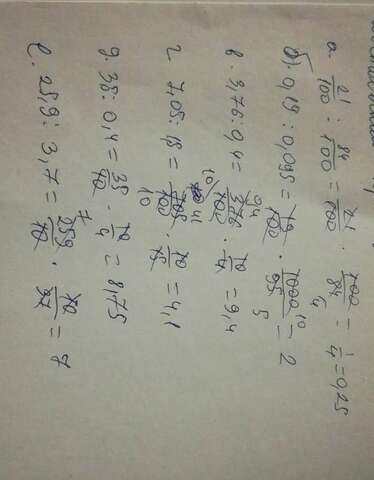 а. 21/100 : 84/100 = 21/100 · 100/84 4 = 1/4 = 0,25
б). 0,19 : 0,095 = 19/100 · 1000 10/95 5 = 2
в. 3,76 : 0,4 = 376/100 · 10/4 = 9,4
г. 7,05 : = 705/100 · 10/15 = 4,1
д. 35 : 0,4 = 35/10 · 10/4 = 8,75
е. 25,9 : 3,7 = 259/10 · 10/37 = 7